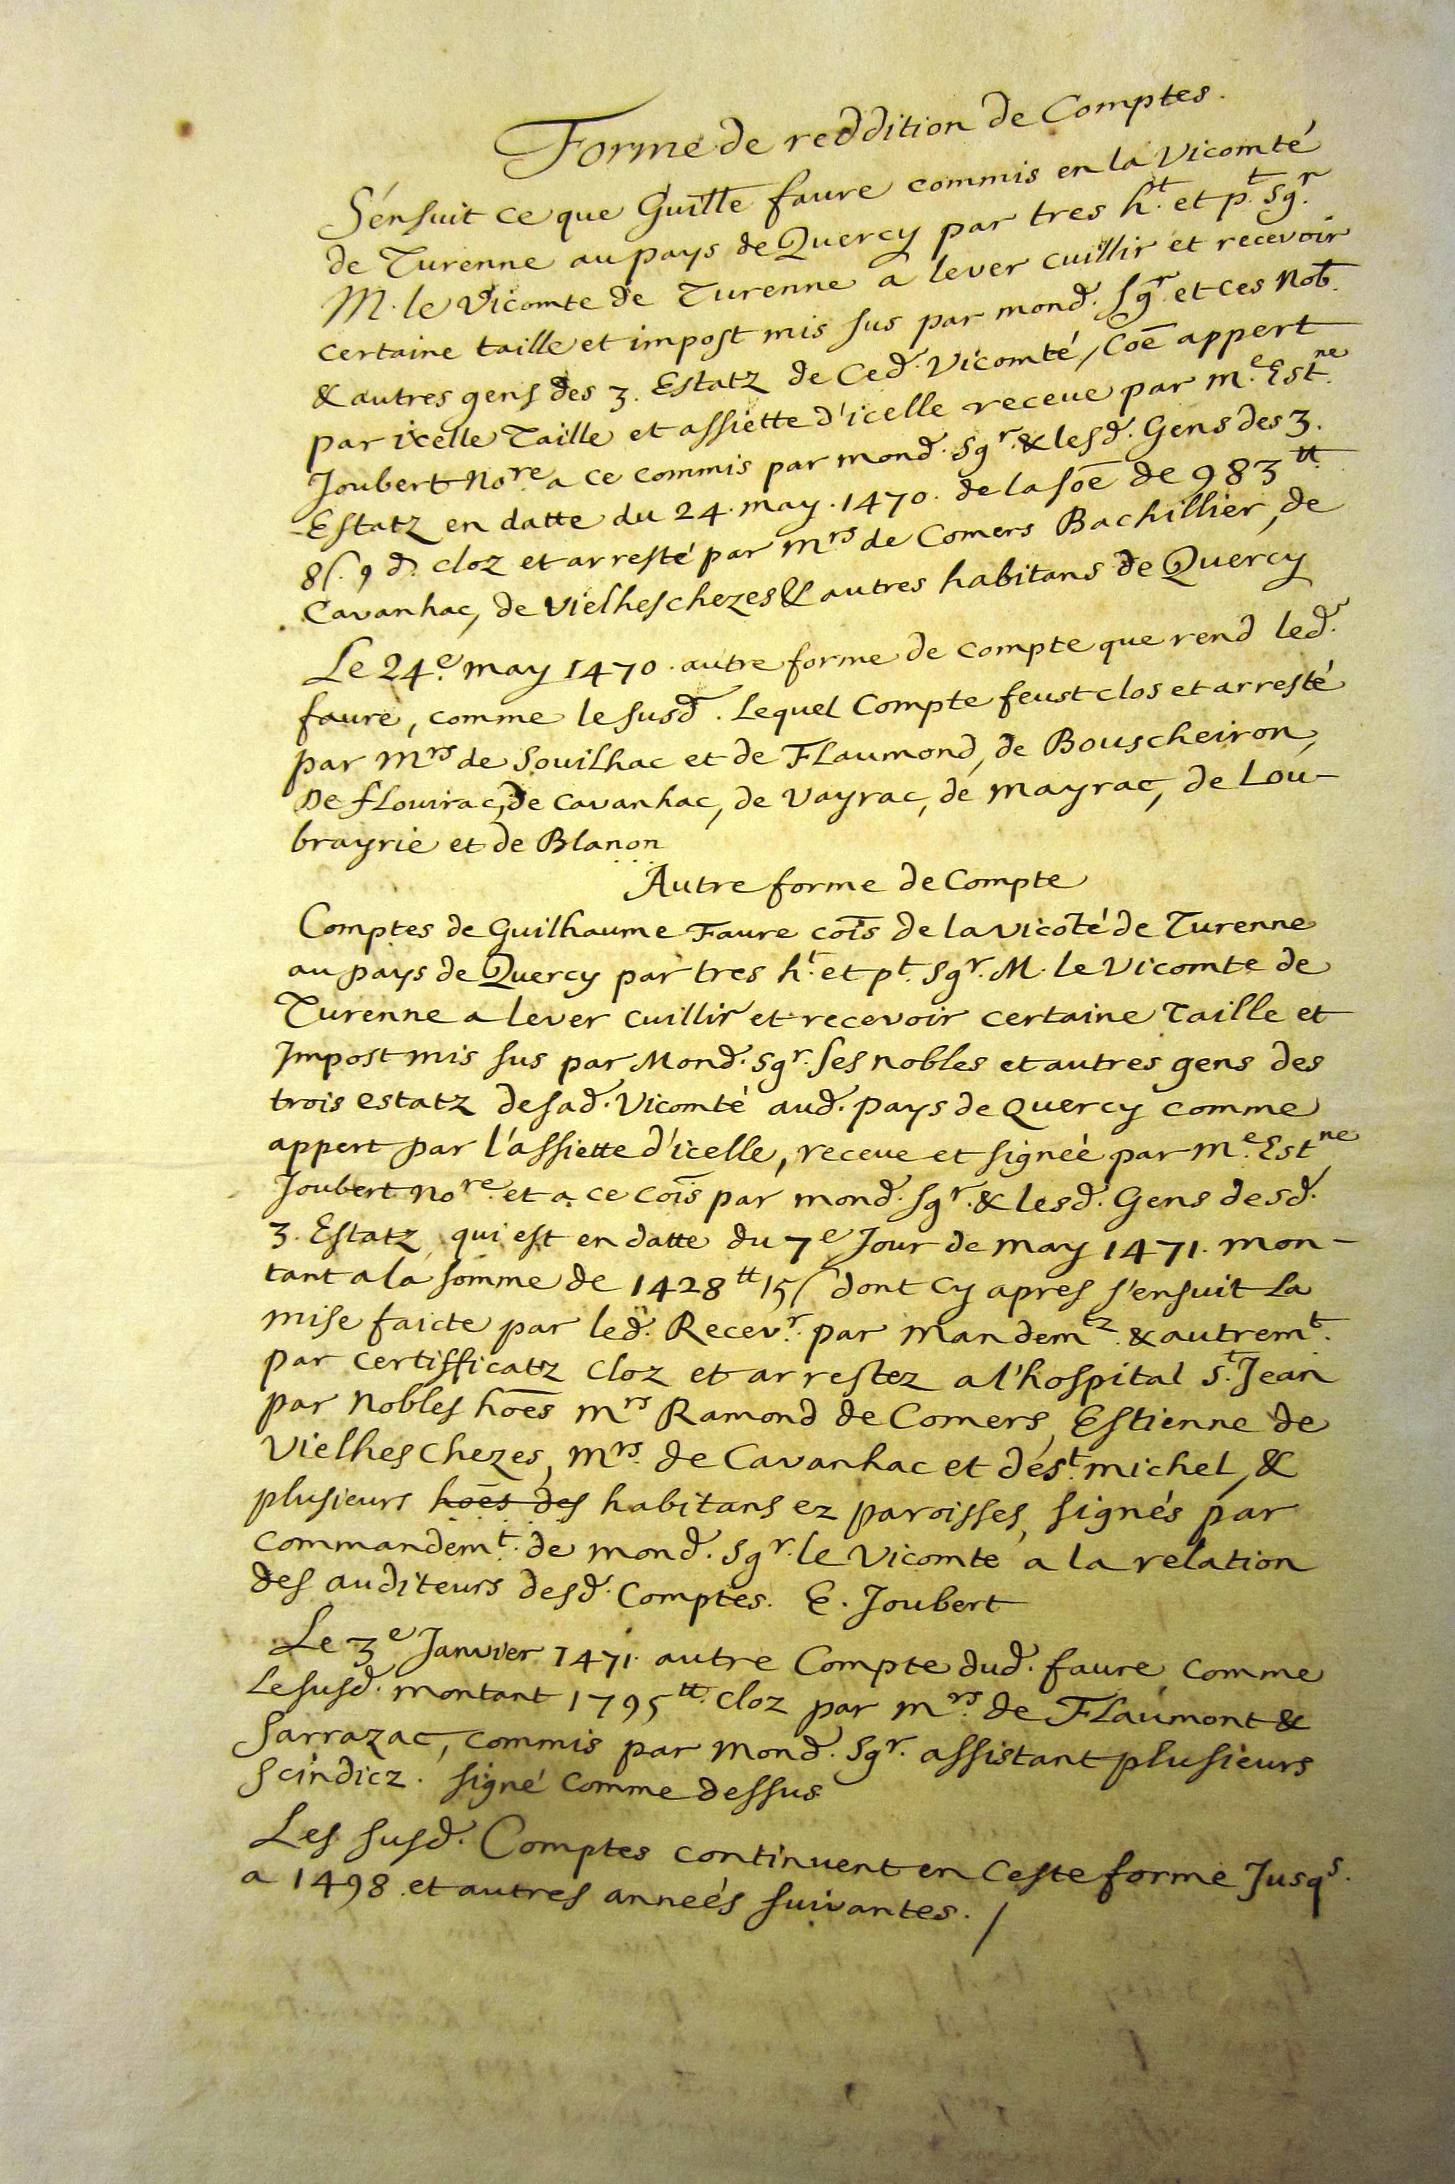 Forme de reddition de Comptes.
S'ensuit ce que Guille faure commis en la Vicomté
de Turenne au pays de Quercy par tres ht. et pt. Sgr.
M. le Vicomte de Turenne a lever cuillir et recevoir
certaine taille et impost mis sus par mond. Sgr. et ces Nob.
& autres gens des 3. Estatz de Ced. Vicomté, Coē appert
par icelle Taille et assiette d'icelle receue par me. Estne.
Joubert Nore a ce commis par mond. Sgr. & lesd. Gens des 3.
Estatz en datte du 24. may. 1470. de la soē de 983 tt.
8 s. 9 d. cloz et arresté par mrs de Comers Bachillier, de
Cavanhac, de Vielheschezes & autres habitans de Quercy
Le 24e. may 1470. autre forme de compte que rend led.
faure, comme le susd. Lequel Compte feust clos et arresté
par mrs de Souilhac et de Flaumond, de Bouscheiron,
De flouirac, de Cavanhac, de Vayrac, de Mayrac, de Lou-
brayrie et de Blanon
Autre forme de Compte
Comptes de Guilhaume Faure cōis de la vicōté de Turenne
au pays de Quercy par tres ht. et pt. Sgr. M. le Vicomte de
Turenne a lever cuillir et recevoir certaine Taille et
Impost mis sus par Mond. Sgr. Ses nobles et autres gens des
trois estatz desad. Vicomté aud. pays de Quercy comme
appert par l'assiette d'icelle, receue et signée par me. Estne
Joubert nore. et a ce cōis par mond. Sgr. & lesd. Gens desd.
3. Estatz, qui est en datte du 7e Jour de may 1471. mon-
tant a la somme de 1428 tt 15 s dont Cy apres s'ensuit La
mise faicte par led. Recevr. par mandemtz. & autremt.
par certifficatz cloz et arrestez a l'hospital St. Jean
par Nobles hōēs mrs Ramond de Comers, Estienne de
Vielheschezes, mrs. de Cavanhac et de St. michel, &
plusieurs hoēs des habitans ez paroisses, signés par
Commandemt. de mond. Sgr. le Vicomte a la relation
des auditeurs desd. Comptes. E. Joubert
Le 3e Janvier 1471. autre Compte dud. faure, comme
Le susd. montant 1795 tt. Cloz par mrs. de Flaumont &
Sarrazac, commis par Mond. Sgr. assistant plusieurs
Scindicz. signé comme dessus
Les susd. Comptes continuent en Ceste forme Jusqs.
a 1498 et autres années suivantes. /